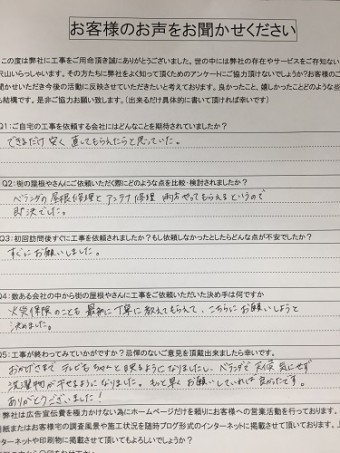 お客様のお声をお聞かせください
この度は弊社に工事をご用命頂き誠にありがとうございました。世の中には弊社の存在やサービスをご存知ない
沢山いらっしゃいます。その方たちに弊社をよく知って頂くためのアンケートにご協力頂けないでしょうか?お客様のご
聞かせいただき今後の活動に反映させていただきたいと考えております。良かったこと、嬉しかったことどのような些
も結構です。是非ご協力お願い致します。(出来るだけ具体的に書いて頂ければ幸いです)
Q1:ご自宅の工事を依頼する会社にはどんなことを期待されていましたか?
できるだけ安く直してもらえたらと思っていた。
Q2:街の屋根やさんにご依頼いただく際にどのような点を比較・検討されましたか?
ベランダの屋根修理とアンテナ修理両方やってもらえるというので
即決でした。
Q3:初回訪問後すぐに工事を依頼されましたか?もし依頼しなかったとしたらどんな点が不安でしたか?
すぐにお願いしました。
Q4:数ある会社の中から街の屋根やさんに工事をご依頼いただいた決め手は何ですか
火災保険のことも最初に丁寧に教えてもらえて、こちらにお願いしようと
決めました。
Q5:工事が終わってみていかがですか?忌憚のないご意見を頂戴出来ましたら幸いです。
おかげさまでテレビもちゃんと映るようになりましたし、ベランダで天候気にせず
洗濯物が干せるようになりました。もっと早くお願いしていれば良かったです。
ありがとうございました!
弊社は広告宣伝費を極力かけない為にホームページだけを頼りにお客様への営業活動を行っております。
用紙またはお客様宅の調査風景や施工状況を随時ブログ形式のインターネットに掲載させて頂いております。
ンターネットや印刷物に掲載させて頂いてもよろしいでしょうか?